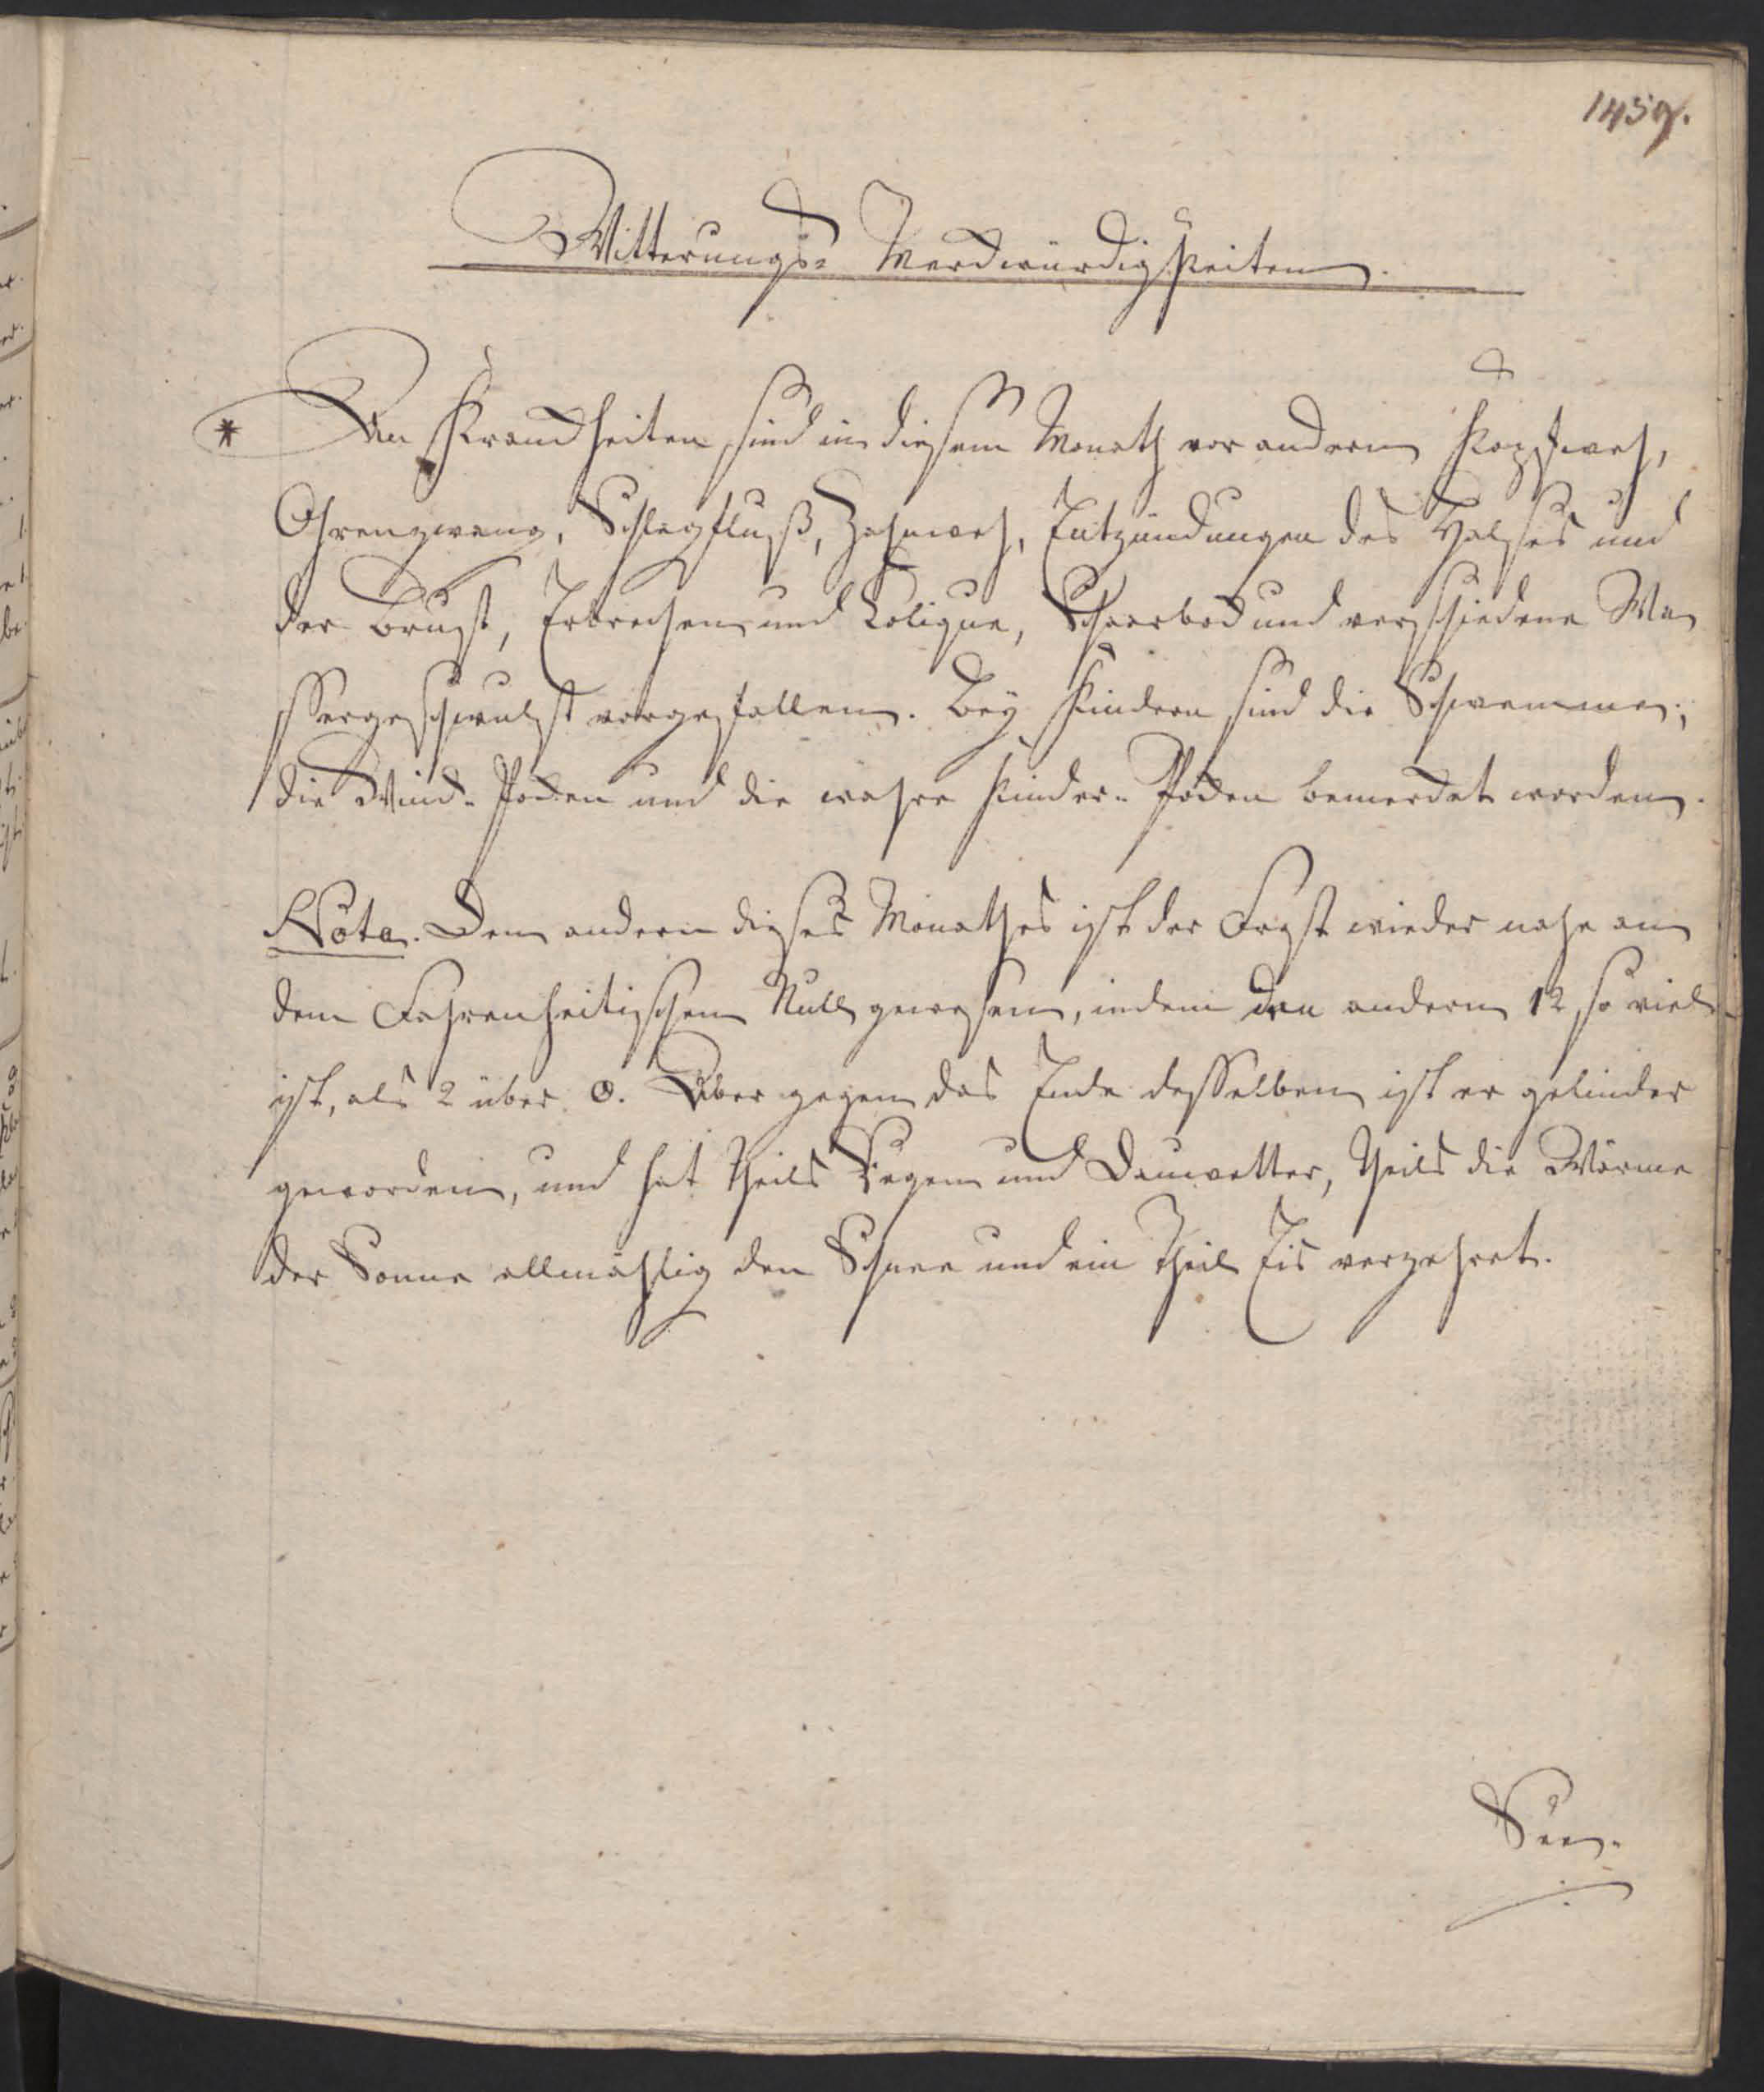 1459.
Witterungs- Merckwürdigkeiten.
* An Kranckheiten sind in diesem Monath vor andern Kopfweh,
Ohrenzwang, Schlagfluß, Zahnweh, Entzündungen des Halses und
der Brust, Erbrechen und Colique, Scharbock und verschiedene Wa-
ssergeschwulst vorgefallen. Bey Kindern sind die Schwämme,
die Wind-Pocken und die wahre Kinder-Pocken bemerckt worden.
Nota. Den andern dieses Monathes ist der Frost wieder nahe an
dem Fahrenheitischen Null gewesen, indem den andern 12 so viel
ist, als 2 über 0. Aber gegen das Ende desselben ist er gelinder
geworden, und hat theils Regen und Dauwetter, theils die Wärme
der Sonne allmählig den Schnee und ein Theil Eis verzehret.